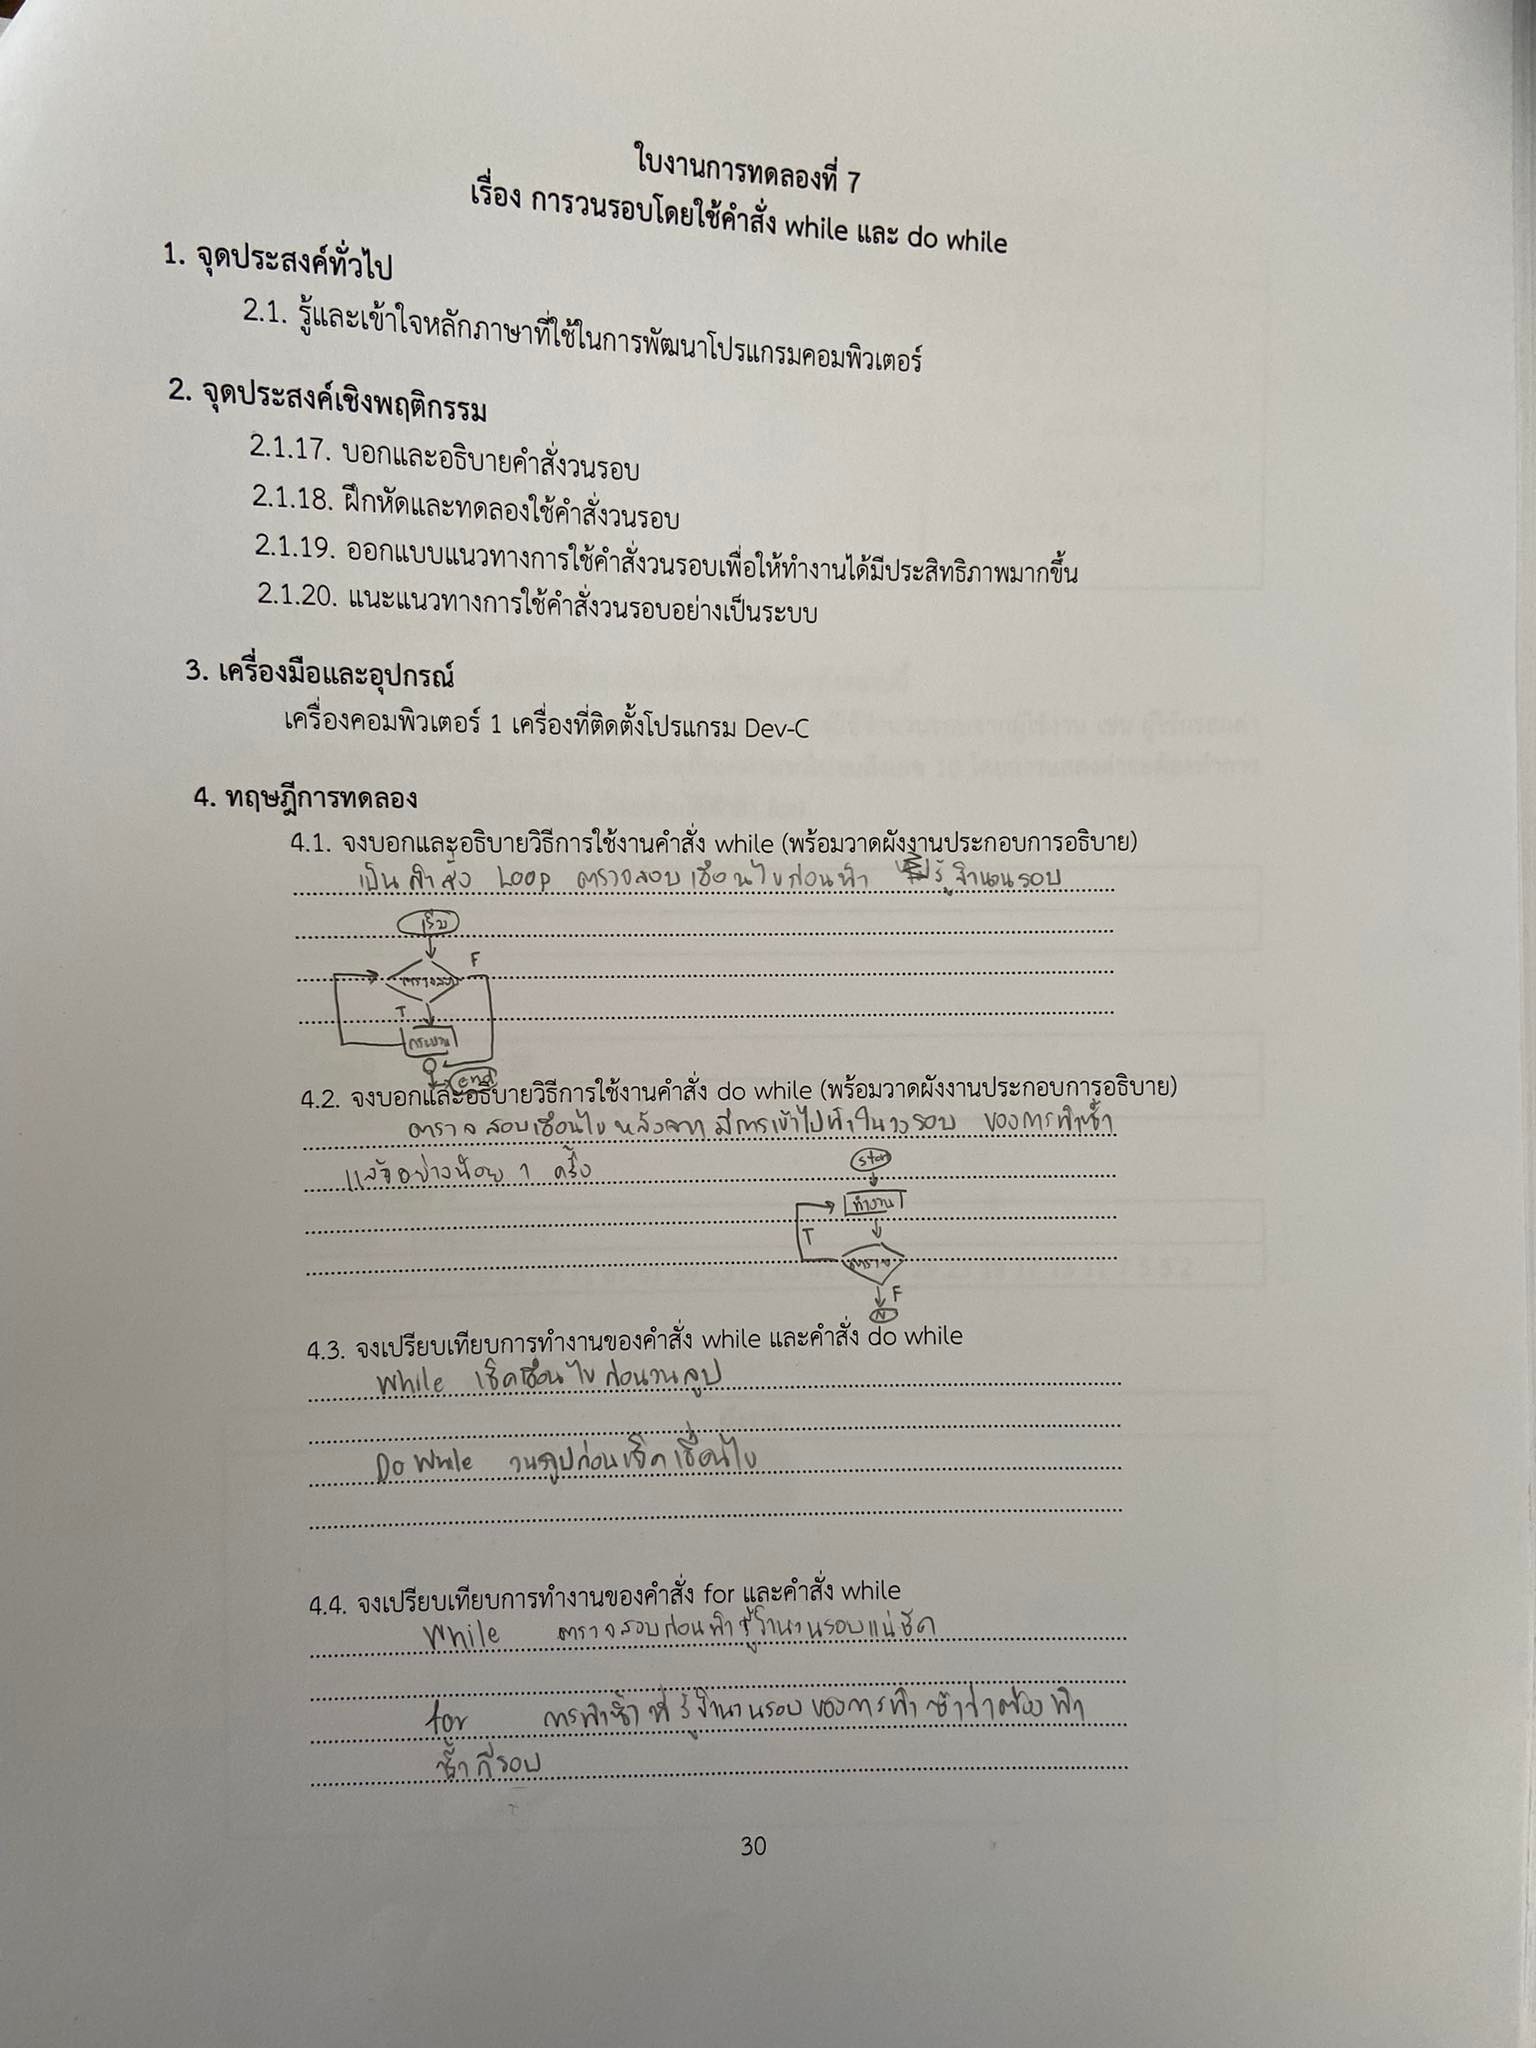 ใบงานการทดลองที่ 7
เรื่อง การวนรอบโดยใช้คำสั่ง while และ do while
1. จุดประสงค์ทั่วไป
2.1. รู้และเข้าใจหลักภาษาที่ใช้ในการพัฒนาโปรแกรมคอมพิวเตอร์
2. จุดประสงค์เชิงพฤติกรรม
2.1.17. บอกและอธิบายคำสั่งวนรอบ
2.1.18. ฝึกหัดและทดลองใช้คำสั่งวนรอบ
2.1.19. ออกแบบแนวทางการใช้คำสั่งวนรอบเพื่อให้ทำงานได้มีประสิทธิภาพมากขึ้น
2.1.20. แนะแนวทางการใช้คำสั่งวนรอบอย่างเป็นระบบ
3. เครื่องมือและอุปกรณ์
เครื่องคอมพิวเตอร์ 1 เครื่องที่ติดตั้งโปรแกรม Dev-C
4. ทฤษฎีการทดลอง
4.1. จงบอกและอธิบายวิธีการใช้งานคำสั่ง while (พร้อมวาดผังงานประกอบการอธิบาย)
เป็นคำสั่ง Loop ตรวจสอบเงื่อนไขก่อนทำ รู้จำนวนรอบ
เริ่ม
F
ตรวจสอบ
T
กระบวน
end
4.2. จงบอกและอธิบายวิธีการใช้งานคำสั่ง do while (พร้อมวาดผังงานประกอบการอธิบาย)
ตรวจสอบเงื่อนไขหลังจากมีการเข้าไปทำในวงรอบ ของการทำซ้ำ
แล้วอย่างน้อย 1 ครั้ง
start
ทำงาน
T
ตรวจ
F
4.3. จงเปรียบเทียบการทำงานของคำสั่ง while และคำสั่ง do while
While เช็คเงื่อนไขก่อนวนลูป
Do While วนลูปก่อนเช็คเงื่อนไข
4.4. จงเปรียบเทียบการทำงานของคำสั่ง for และคำสั่ง while
While ตรวจสอบก่อนทำ รู้จำนวนรอบแน่ชัด
for การทำซ้ำที่รู้จำนวนรอบของการทำซ้ำว่าต้องทำ
ซ้ำกี่รอบ
30